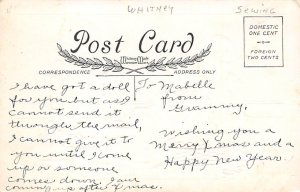 WHITNEY
SEWING
Post Card
CORRESPONDENCE
ADDRESS ONLY
DOMESTIC
ONE CENT
FOREIGN
TWO CENTS
I have got a doll
for you but as I
cannot send it
through the mail,
I cannot give it to
you until I come
up or someone
comes down. I am
coming up after Xmas.
To Mabelle
from
Grammy.
Wishing you a
Merry Xmas and a
Happy New Year.